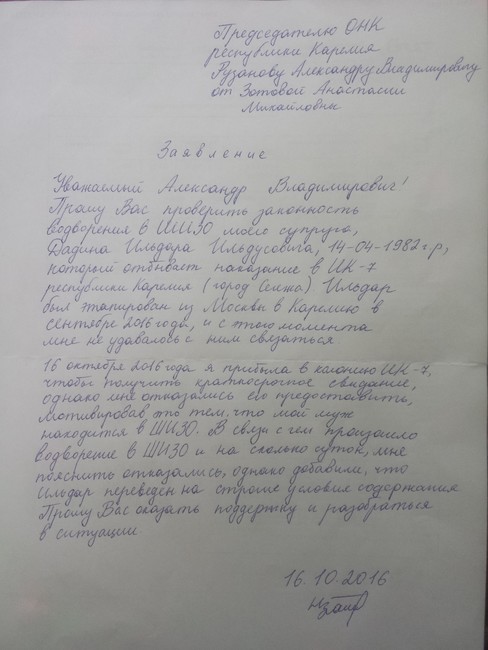 Председателю ОНК
республики Карелия
Рузанову Александру Владимировичу
от Зотовой Анастасии
Михайловны
Заявление
Уважаемый Александр Владимирович!
Прошу Вас проверить законность
водворения в ШИЗО моего супруга,
Дадина Ильдара Ильдусовича, 14-04-1982 г.р,
который отбывает наказание в ИК-7
республики Карелия (город Сегежа) Ильдар
был этапирован из Москвы в Карелию в
сентябре 2016 года, и с этого момента
мне не удавалось с ним связаться.
16 октября 2016 года я прибыла в колонию ИК-7,
чтобы получить краткосрочное свидание,
однако мне отказались его предоставить,
мотивировав это тем, что мой муж
находится в ШИЗО. В связи с чем произошло
водворение в ШИЗО и на сколько суток, мне
пояснить отказались, однако добавили, что
Ильдар переведён на строгие условия содержания
Прошу Вас оказать поддержку и разобраться
в ситуации
16.10.2016